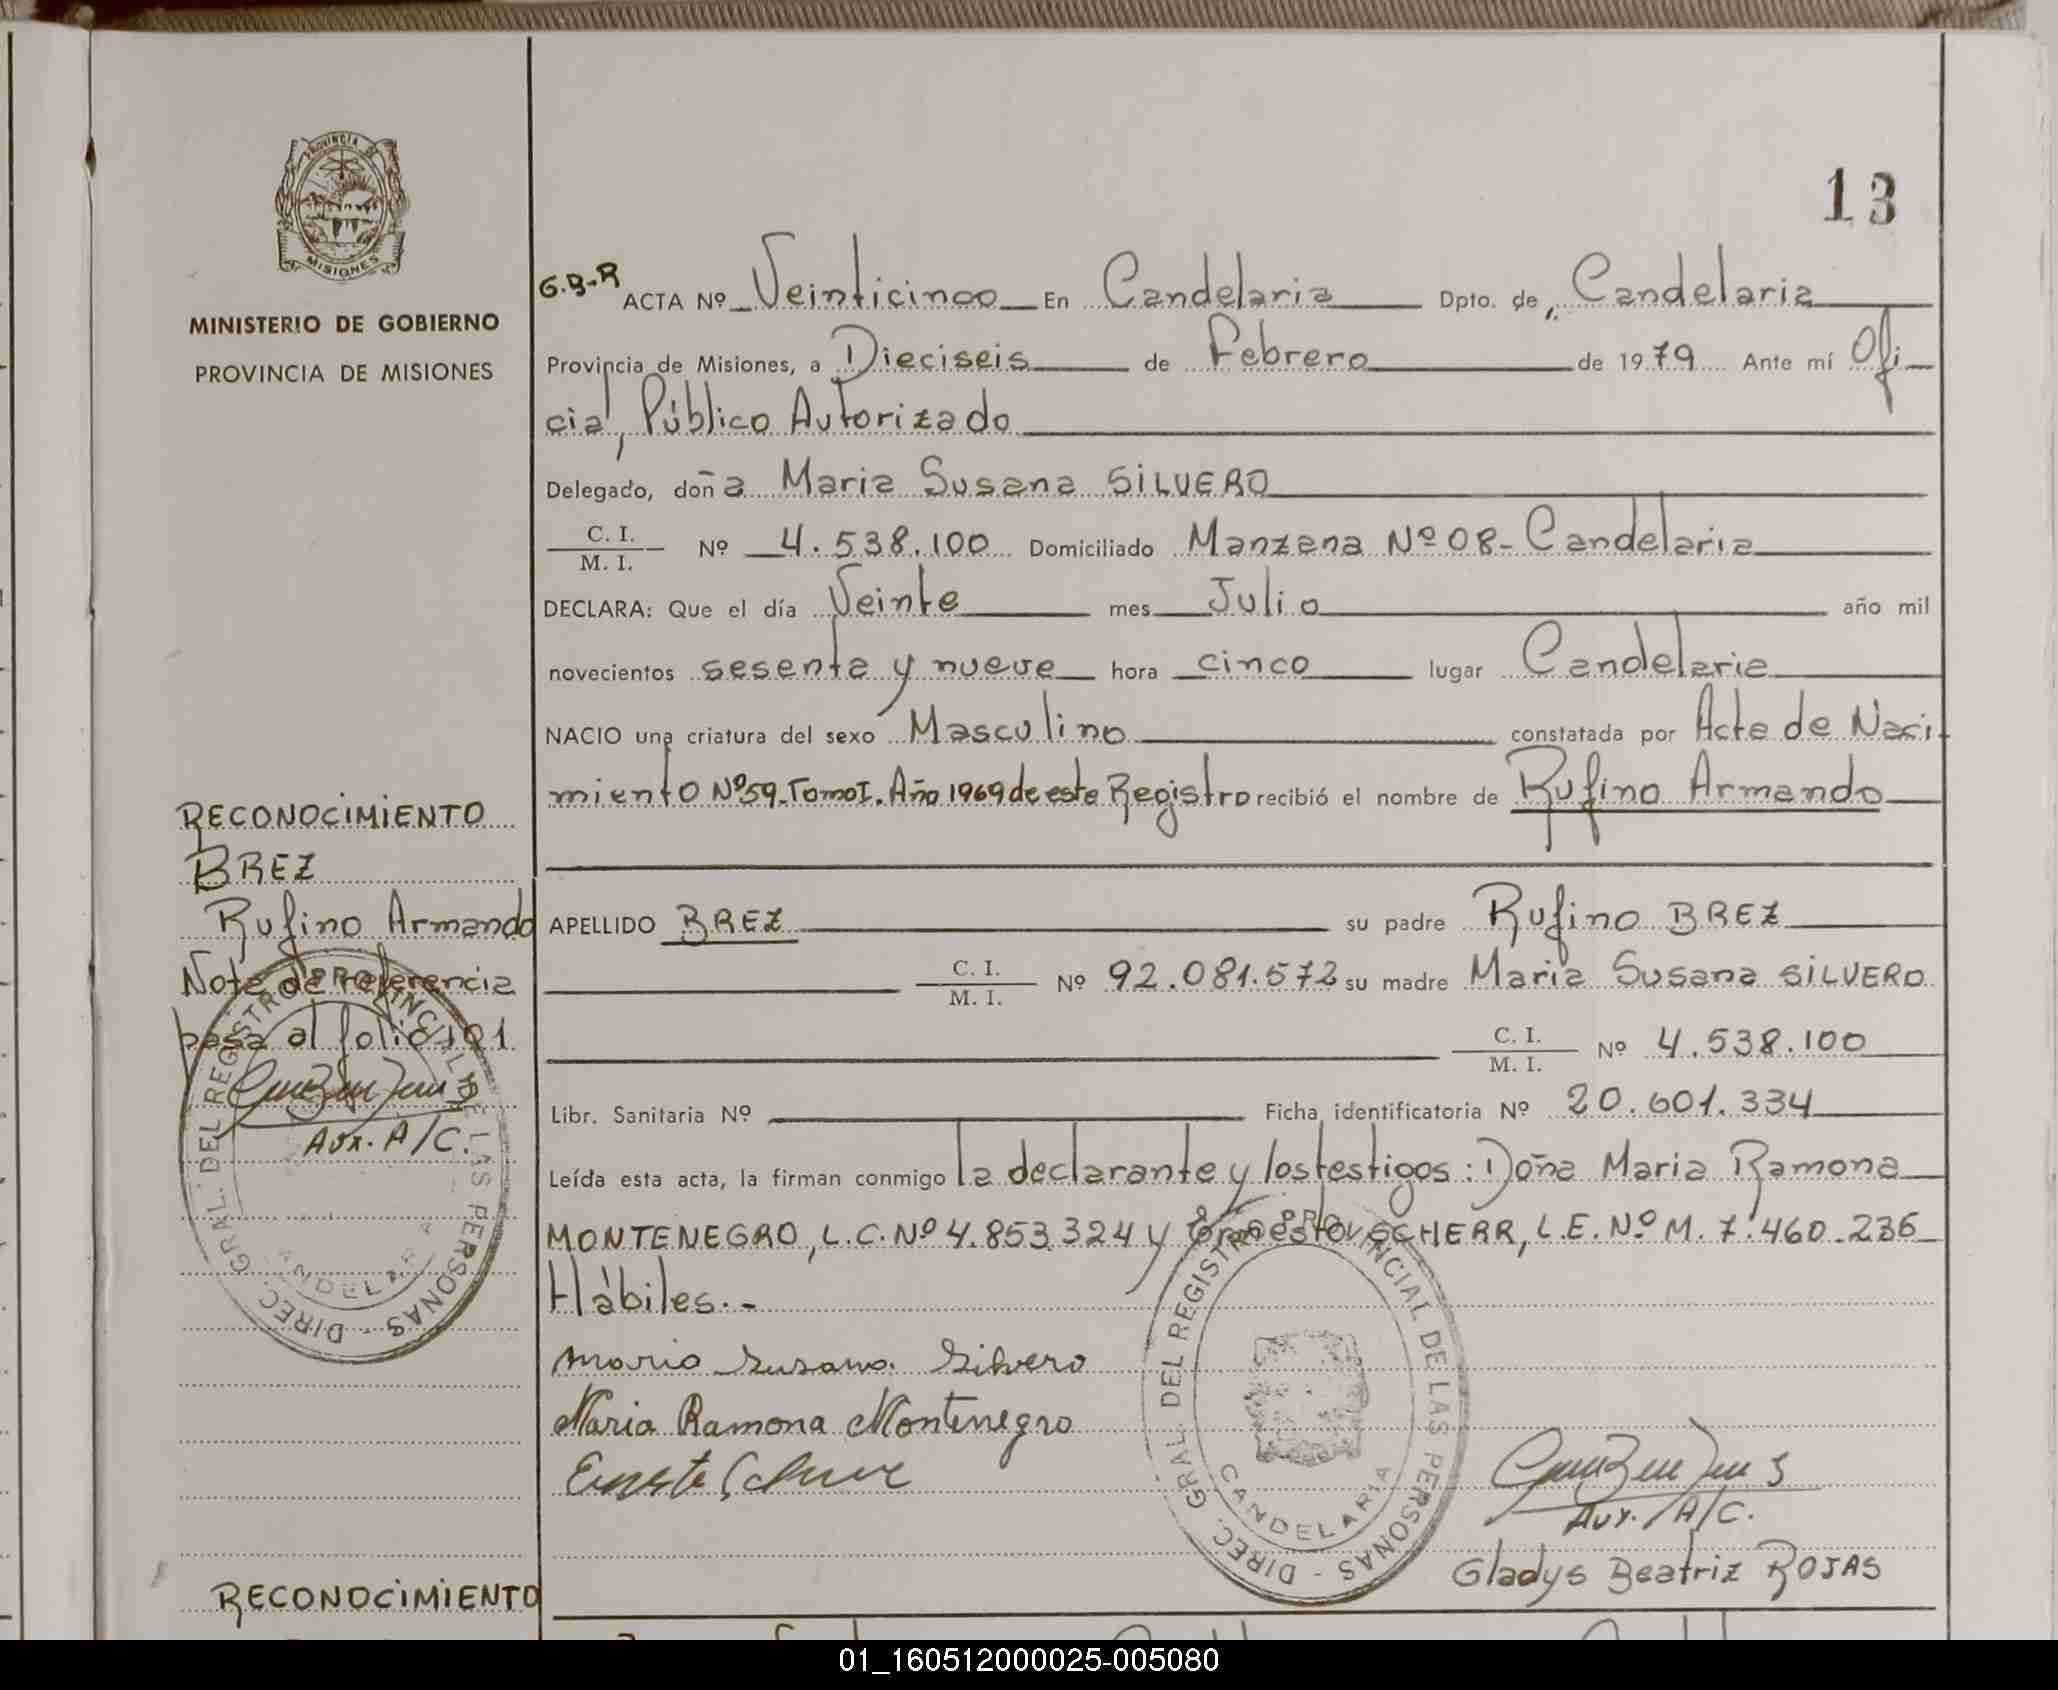 13
PROVINCIA DE
MISIONES
MINISTERIO DE GOBIERNO
PROVINCIA DE MISIONES
G.B-R ACTA Nº Veinticinco En Candelaria Dpto. de Candelaria
Provincia de Misiones, a Dieciseis de Febrero de 1979 Ante mí Ofi
cial, Público Autorizado
Delegado, doña Maria Susana SILVERO
C. I.
M. I. Nº 4.538.100 Domiciliado Manzana Nº 08-Candelaria
DECLARA: Que el día Veinte mes Julio año mil
novecientos sesenta y nueve hora cinco lugar Candelaria
NACIO una criatura del sexo Masculino constatada por Acta de Naci
miento Nº59.TomoI.Año 1969 de este Registro recibió el nombre de Rufino Armando
APELLIDO BREZ su padre Rufino BREZ
C. I.
M. I. Nº 92.081.572 su madre Maria Susana SILVERO
C. I.
M. I. Nº 4.538.100
Libr. Sanitaria Nº Ficha identificatoria Nº 20.601.334
Leída esta acta, la firman conmigo la declarante y los testigos: Doña Maria Ramona
MONTENEGRO, L.C.Nº 4.853.324 y Ernesto SCHERR, L.E.Nº M. 7.460.236
Hábiles.-
Maria Susana Silvero
Maria Ramona Montenegro
Aux. A/C.
Gladys Beatriz ROJAS
DIREC. GRAL. DEL REGISTRO PROVINCIAL DE LAS PERSONAS -
CANDELARIA
RECONOCIMIENTO
BREZ
Rufino Armando
Nota de referencia
pasa al folio 101
Aux. A/C.
DIREC. GRAL. DEL REGISTRO PROVINCIAL DE LAS PERSONAS -
CANDELARIA
RECONOCIMIENTO
01_160512000025-005080